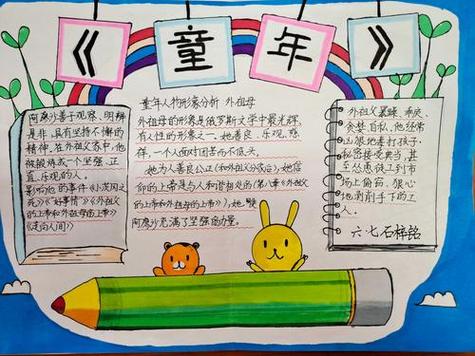 《童年》
阿廖沙善于观察、明辨
是非、具有坚持不懈的
精神，在外祖父家中，他
被锻炼成一个坚强、正
直、乐观的人。
影响他的事件《小茨冈之
死》《好事情》《外祖父
的上帝和外祖母的上帝》
《走向人间》
童年人物形象分析 外祖母
外祖母的形象是俄罗斯文学中最光辉、
有人性的形象之一。她善良、乐观、慈
祥，一个人面对困苦而不低头。
她为人善良公正（和外祖父分家后），她信
仰的上帝是与人和谐相处的（第八章《外祖父
的上帝和外祖母的上帝》），她使
阿廖沙充满了坚强的力量。
外祖父暴躁、乖戾、
贪婪、自私，他经常
凶狠地毒打孩子，
秘密接受典当，甚
至怂恿徒工到市
场上偷窃，狠心
地剥削手下的工
人。
六·七石梓铭